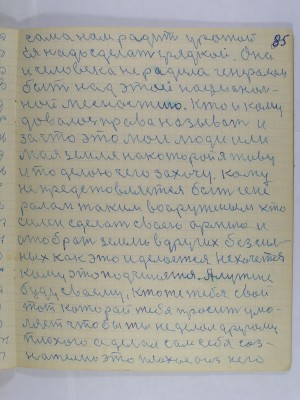 сама нам радит урожой 85
ея надо сделат грядкой. Она
и человека не радила генералом
быт над этой национал-
ной месностию. Кто и кому
довал ос права называт и
за что это мои люди или
моя земля на которой я живу
и что делою чего захочу. Кому
не предстовляется быт гене
ралом таким вооруженым кто
силен сделат своего армию и
отобрат землю в других безсил-
ных как это и делается не хочется
кому это подчинятся. А лутше
буду своему, кто же тебе свой
тот каторай тебя просит умо-
ляет чтобы ты не делал другому
плохого а делал сам себя соз-
нателно это плохое а из него